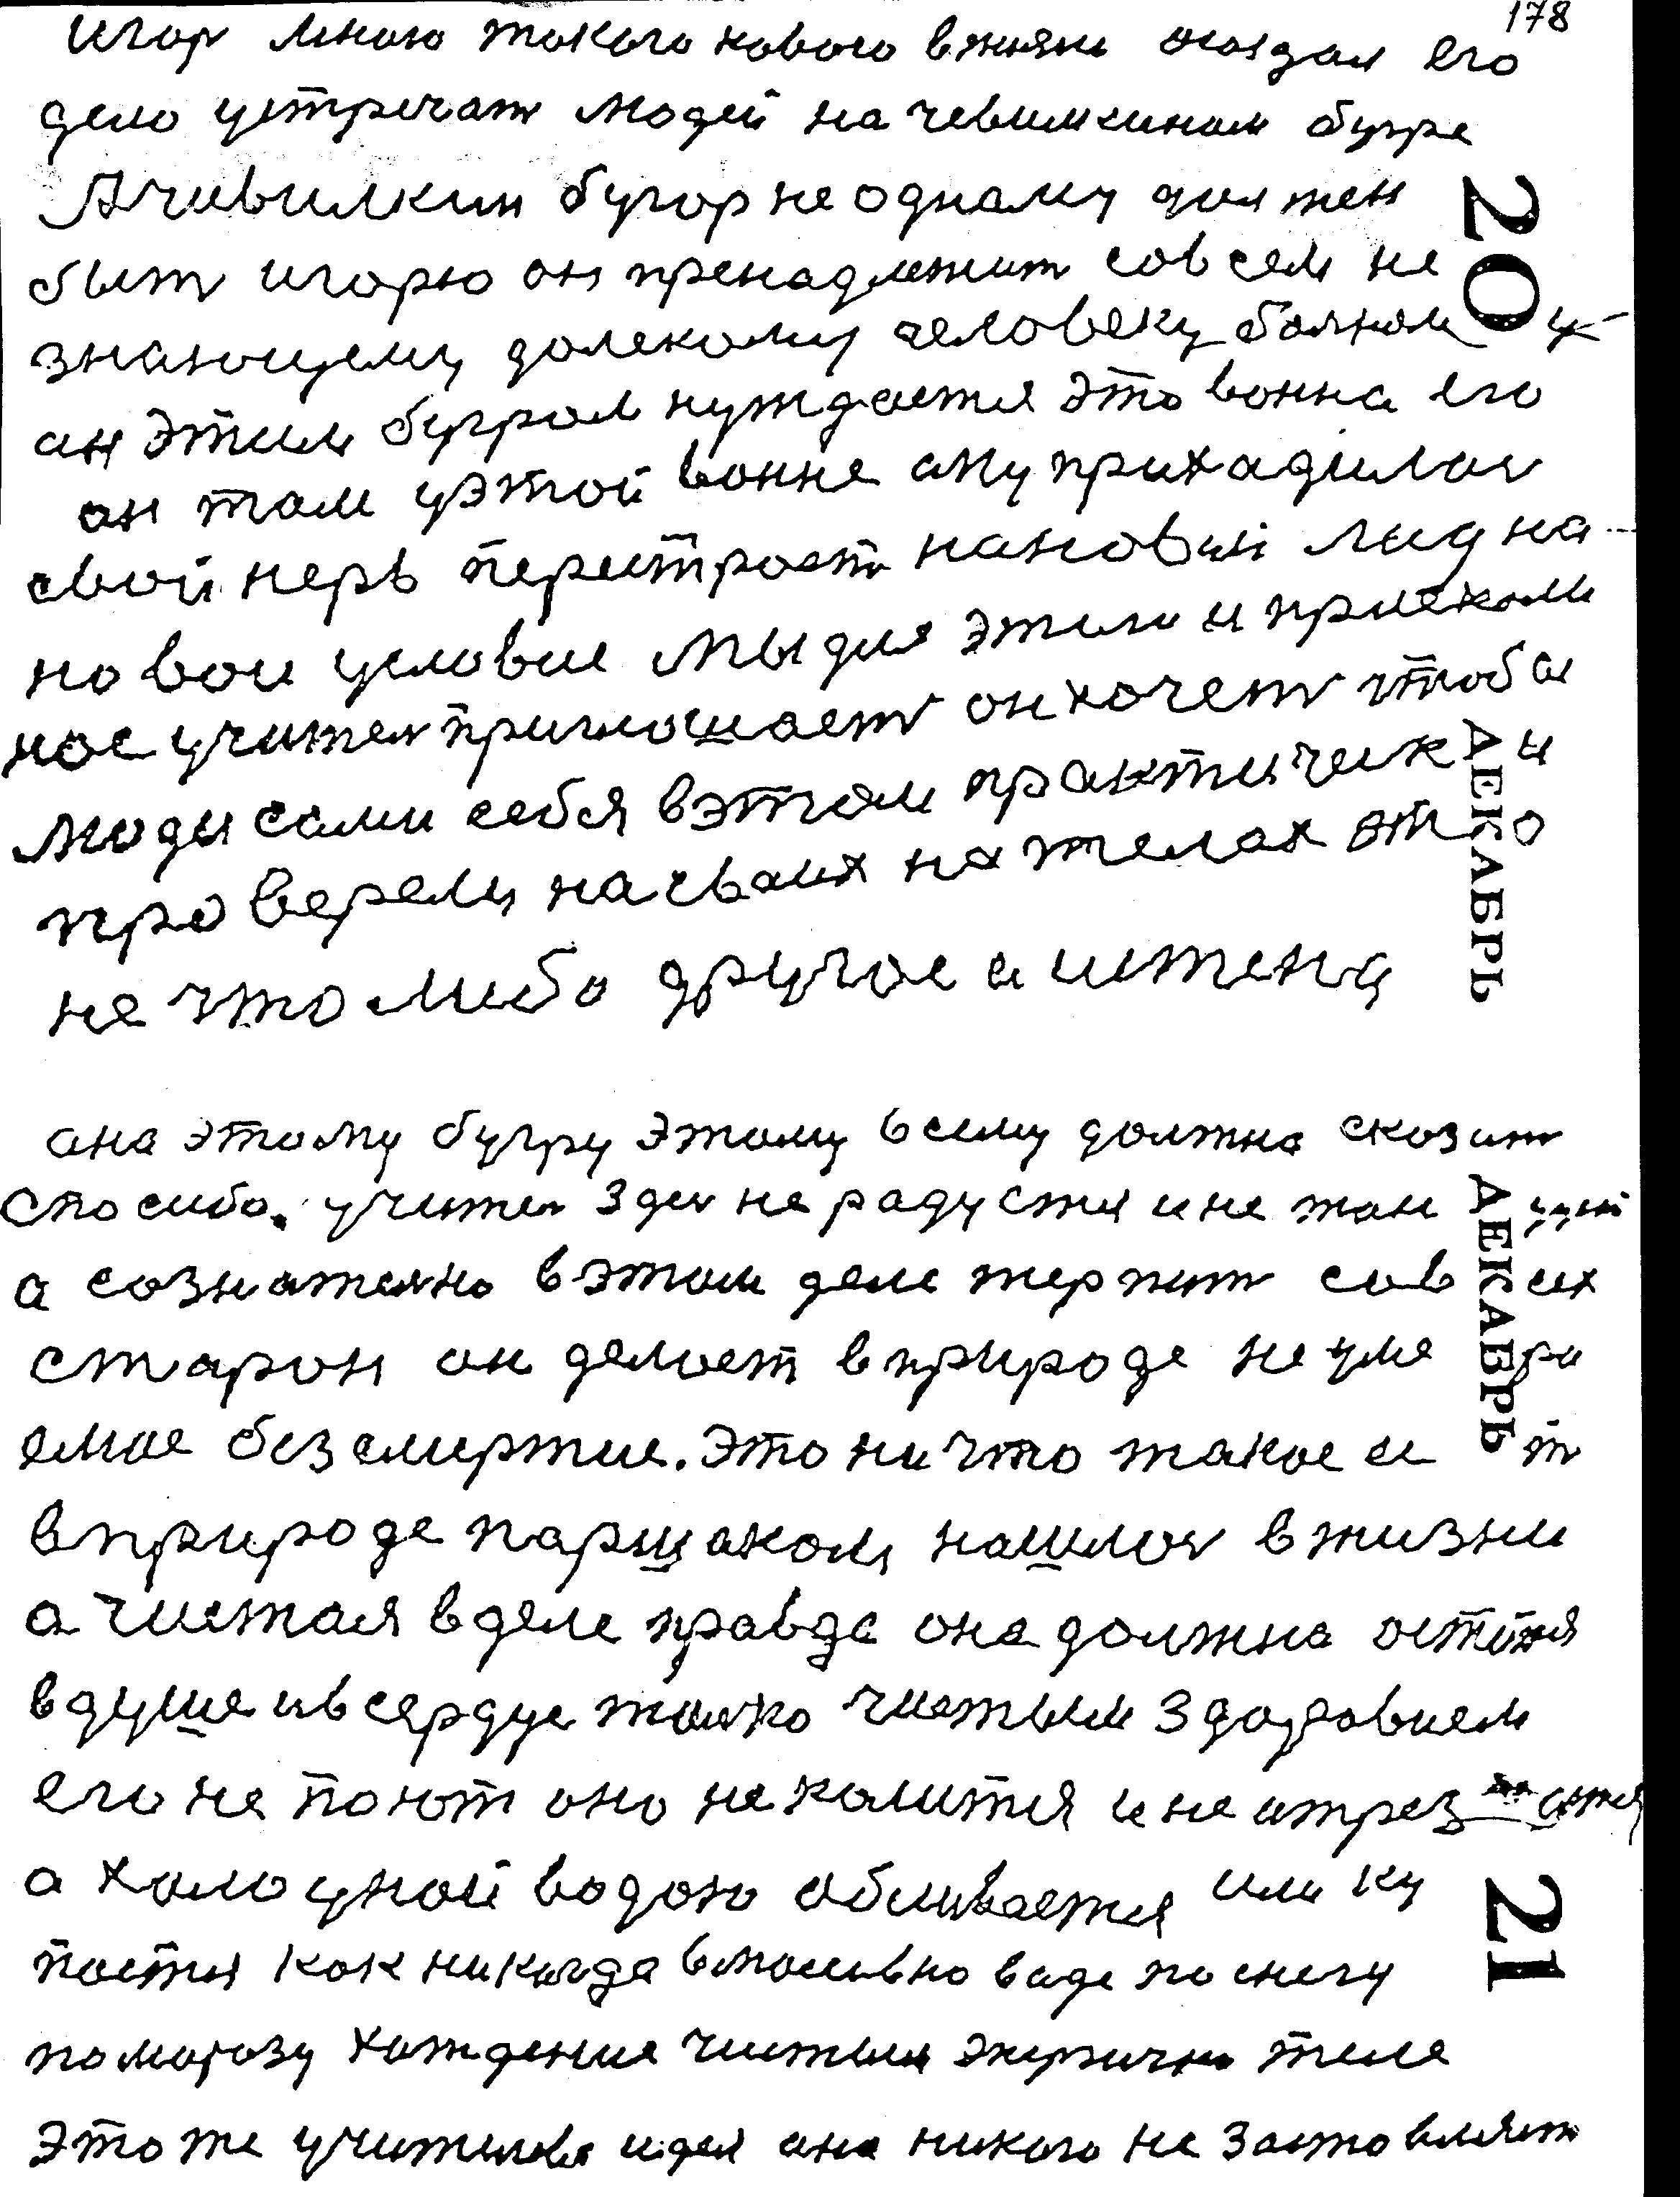 178
игор мною такого нового вжизне оказал его
дело устречат людей на чевилкином бугре
Ачивилкин бугор не одному должен
быт игорю он пренадлежит совсем не
20
знающему далекому человеку болному
он этим бугром нуждается это вонна его
он там уэтой вонне ему прихадилос
свой нерв перетроет нановый лид на
новои условие мы для этого и приехали
нас учител приглошает он хочет чтобы
люди сами себя вэтом практически
ДЕКАБРЬ
проверели на сваих на телах это
не что либо другое а истена
она этому бугру этому всему должна сказат
спосибо. учител здес не радустя и не танцует
ДЕКАБРЬ
а сознателно вэтом деле терпит совсех
старон он делает вприроде не умера
емое безсмертие. Это ни что такое ест
вприроде парщаком нашлос вжизни
а чистая вделе правда она должна остатся
вдуше ив сердце толко чистым здоровием
его не поют оно не колится и не отрезается
21
а холоуной водою обливается или ку
пается как никогда в воде по снегу
поморозу хождение чистым энергично теле
это же учителова идея она никого не заставляет